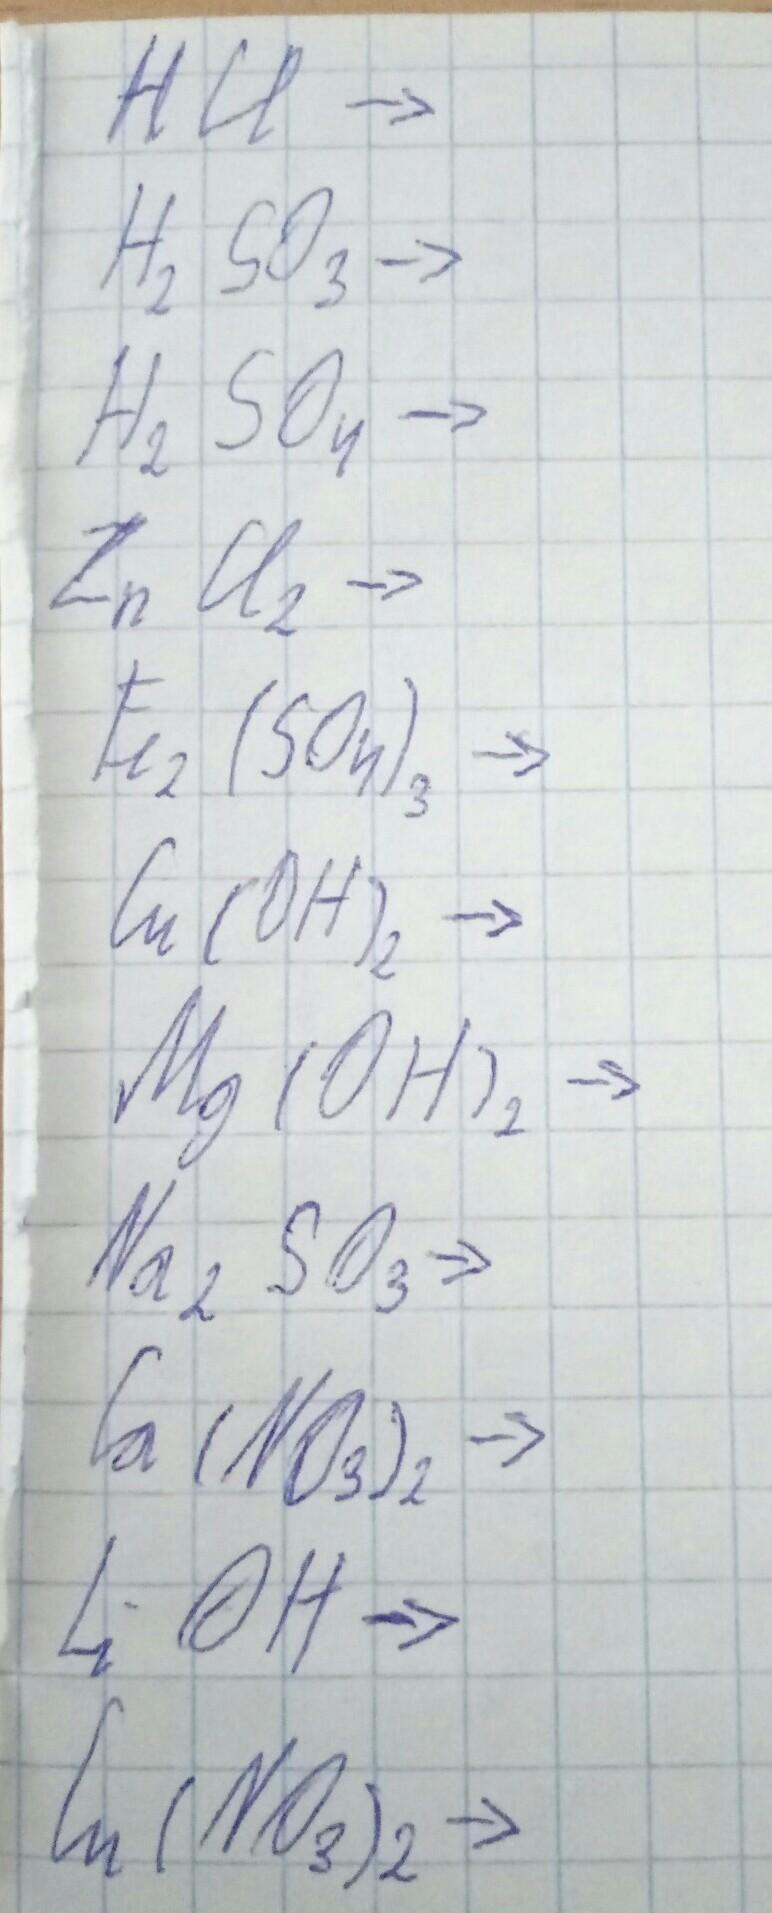 HCl →
H₂SO₃ →
H₂SO₄ →
ZnCl₂ →
Fe₂(SO₄)₃ →
Cu(OH)₂ →
Mg(OH)₂ →
Na₂SO₃ →
Ca(NO₃)₂ →
LiOH →
Cu(NO₃)₂ →